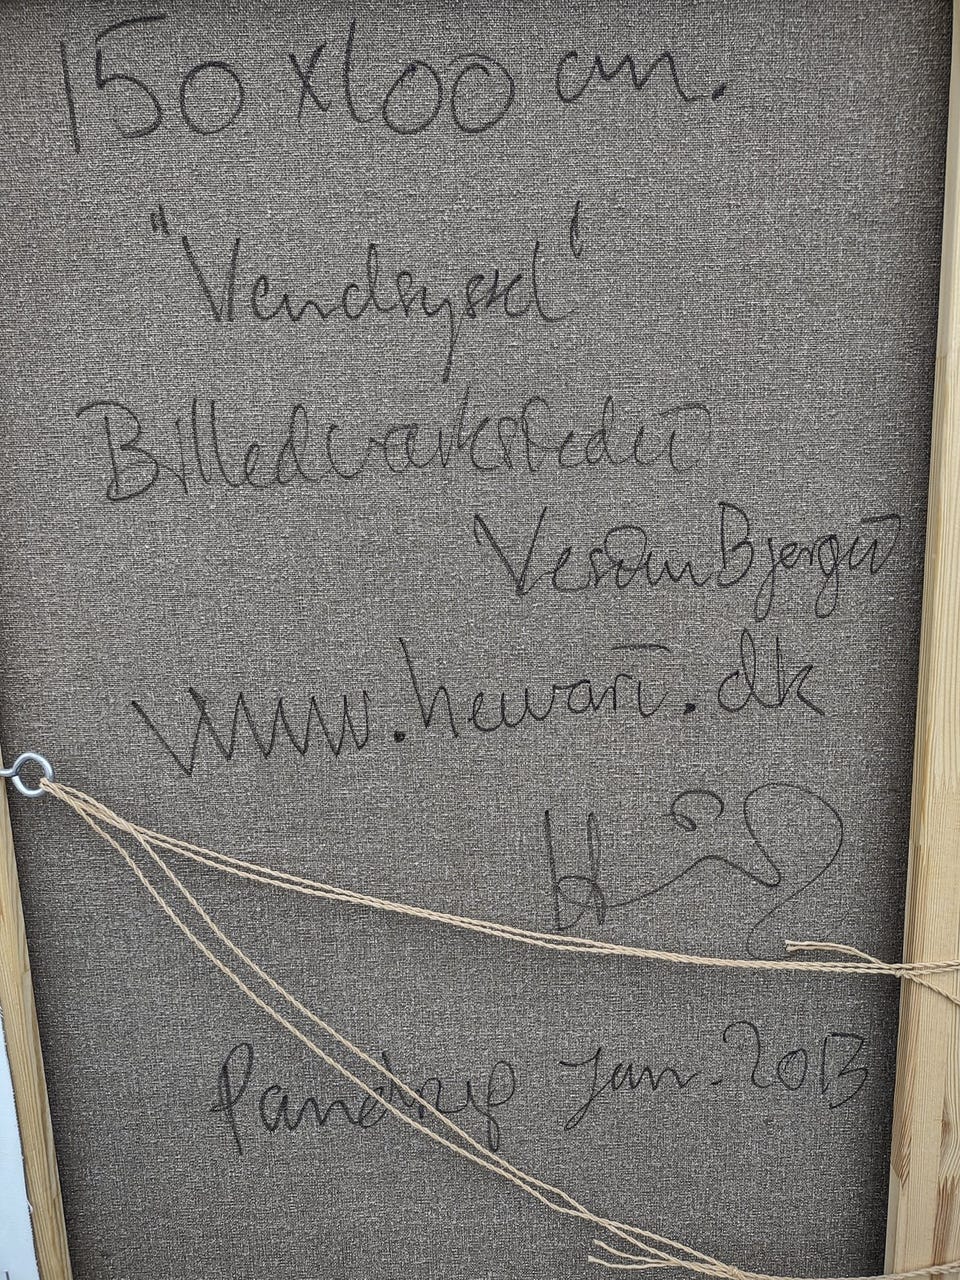 150 x 100 cm.
"Vendsyssel"
Billedværkstedet
Vesten Bjerget
www.hewart.dk
Pandrup Jan. 2013